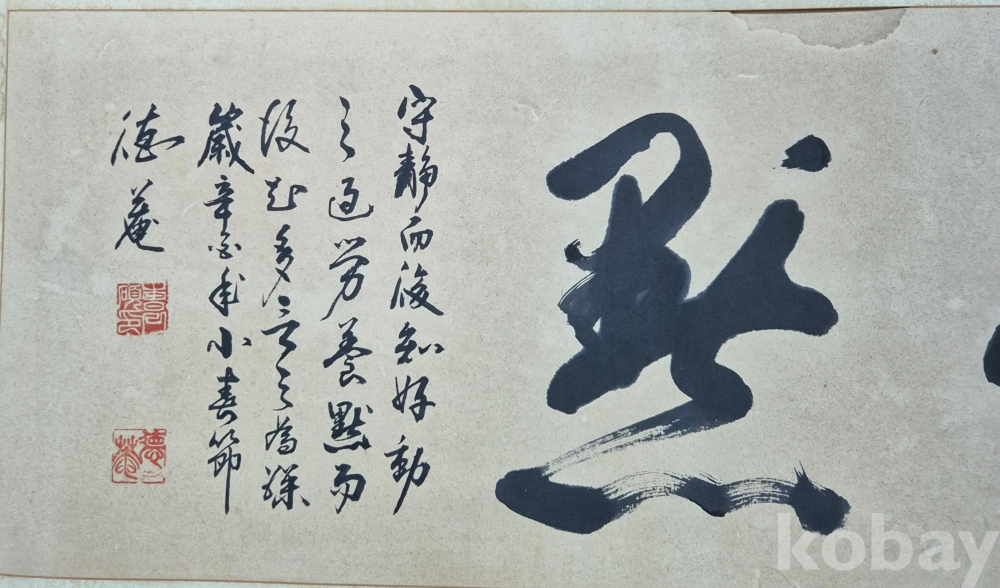 默
守靜而後知好動
之過勞養默而
後知多言之為躁
歲辛酉年小春節
德菴
德菴
kobay